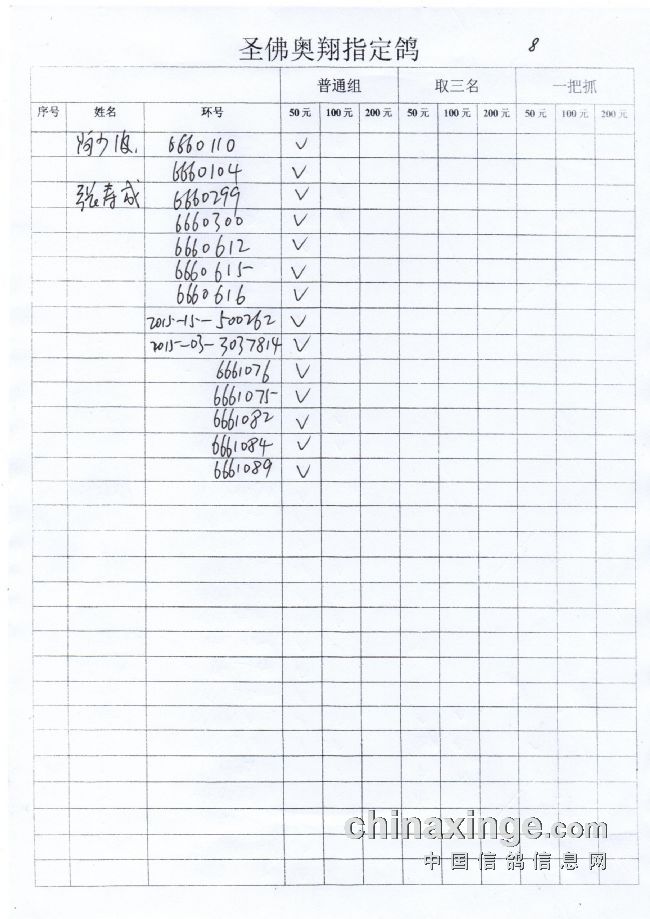 圣佛奥翔指定鸽 8
普通组 取三名 一把抓
序号 姓名 环号 50元 100元 200元 50元 100元 200元 50元 100元 200元
6660110 ✓
6660104 ✓
张寿成 6660299 ✓
6660300 ✓
6660612 ✓
6660615 ✓
6660616 ✓
2015-15-500262 ✓
2015-03-3037814 ✓
6661076 ✓
6661075 ✓
6661082 ✓
6661084 ✓
6661089 ✓
chinaxinge.com
中国信鸽信息网